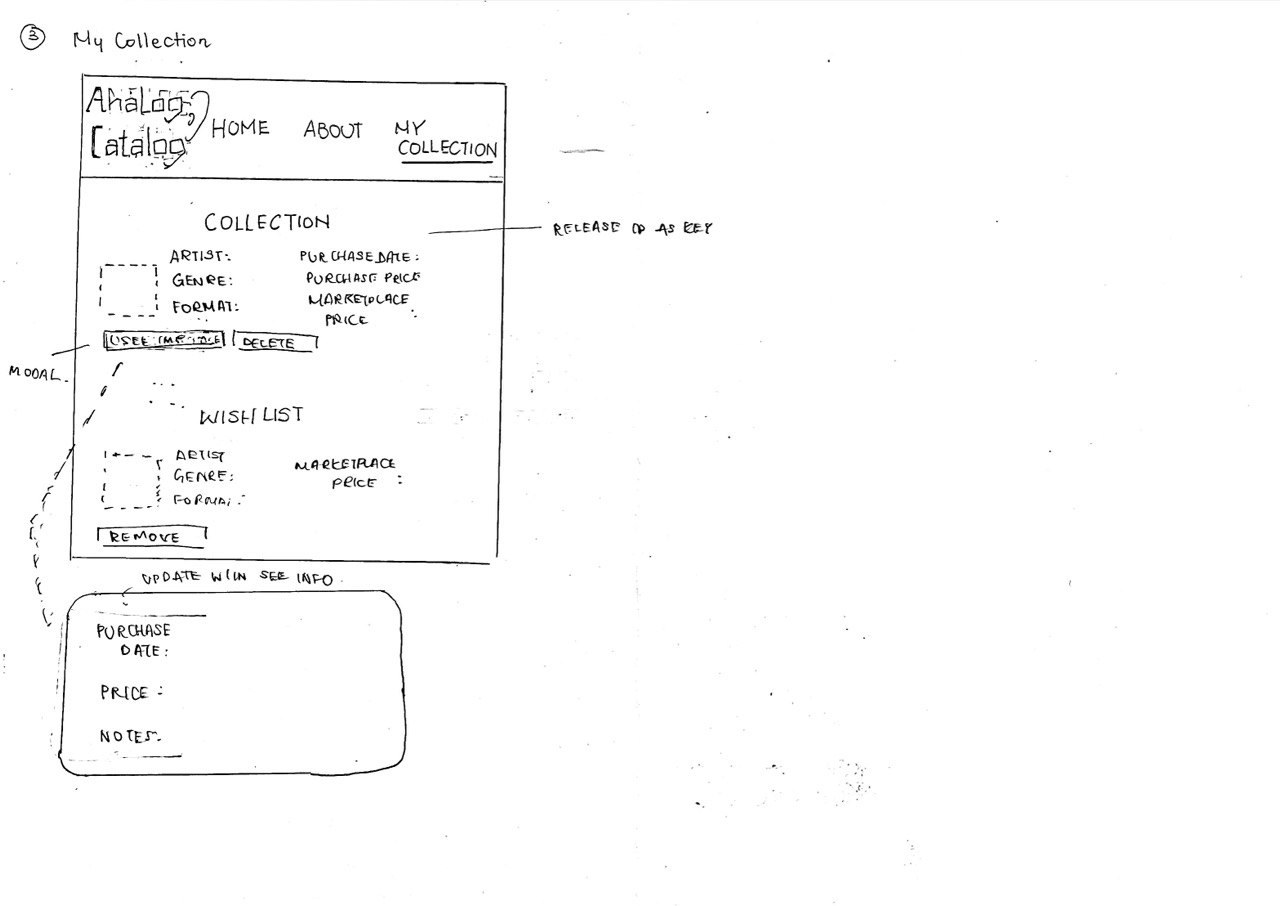 3 My Collection
Analog
Catalog
HOME ABOUT MY
COLLECTION
COLLECTION
RELEASE ID AS KEY
ARTIST: PURCHASE DATE:
GENRE: PURCHASE PRICE
FORMAT: MARKETPLACE
PRICE :
SEE DELETE
MODAL.
WISHLIST
ARTIST
GENRE: MARKETPLACE
PRICE :
FORMAT:
REMOVE
UPDATE W/IN SEE INFO.
PURCHASE
DATE:
PRICE :
NOTES: